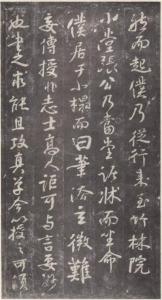 然而起僕乃從行来至竹林院
小堂張公乃當堂踞床而坐命
僕居于小榻而曰筆法玄微難
妄傳授非志士高人詎可與言要妙
也書之求能且攻真草今以授之可須